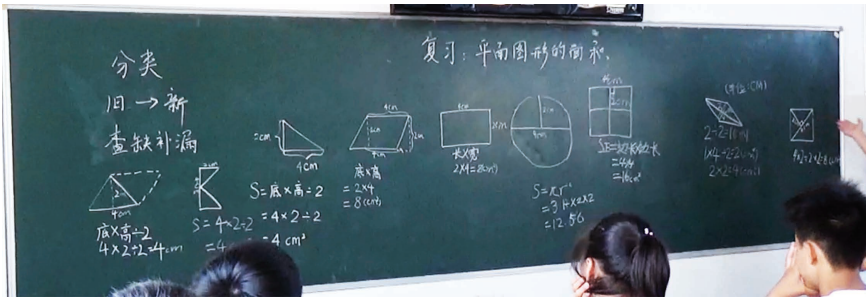 复习：平面图形的面积
分类
旧→新
查缺补漏
2cm
4cm
底×高÷2
4×2÷2=4cm
S=4×2÷2
=4
4cm
S=底×高÷2
=4×2÷2
=4 cm²
4cm
2cm
4cm
底×高
=2×4
=8(cm²)
4cm
2cm
长×宽
2×4=8(cm²)
2cm
4cm
S=πr²
=3.14×2×2
=12.56
4cm
2cm
=4×4
=16cm²
(单位:CM)
2÷2=1(cm)
1×4÷2=2(cm²)
2×2=4(cm²)